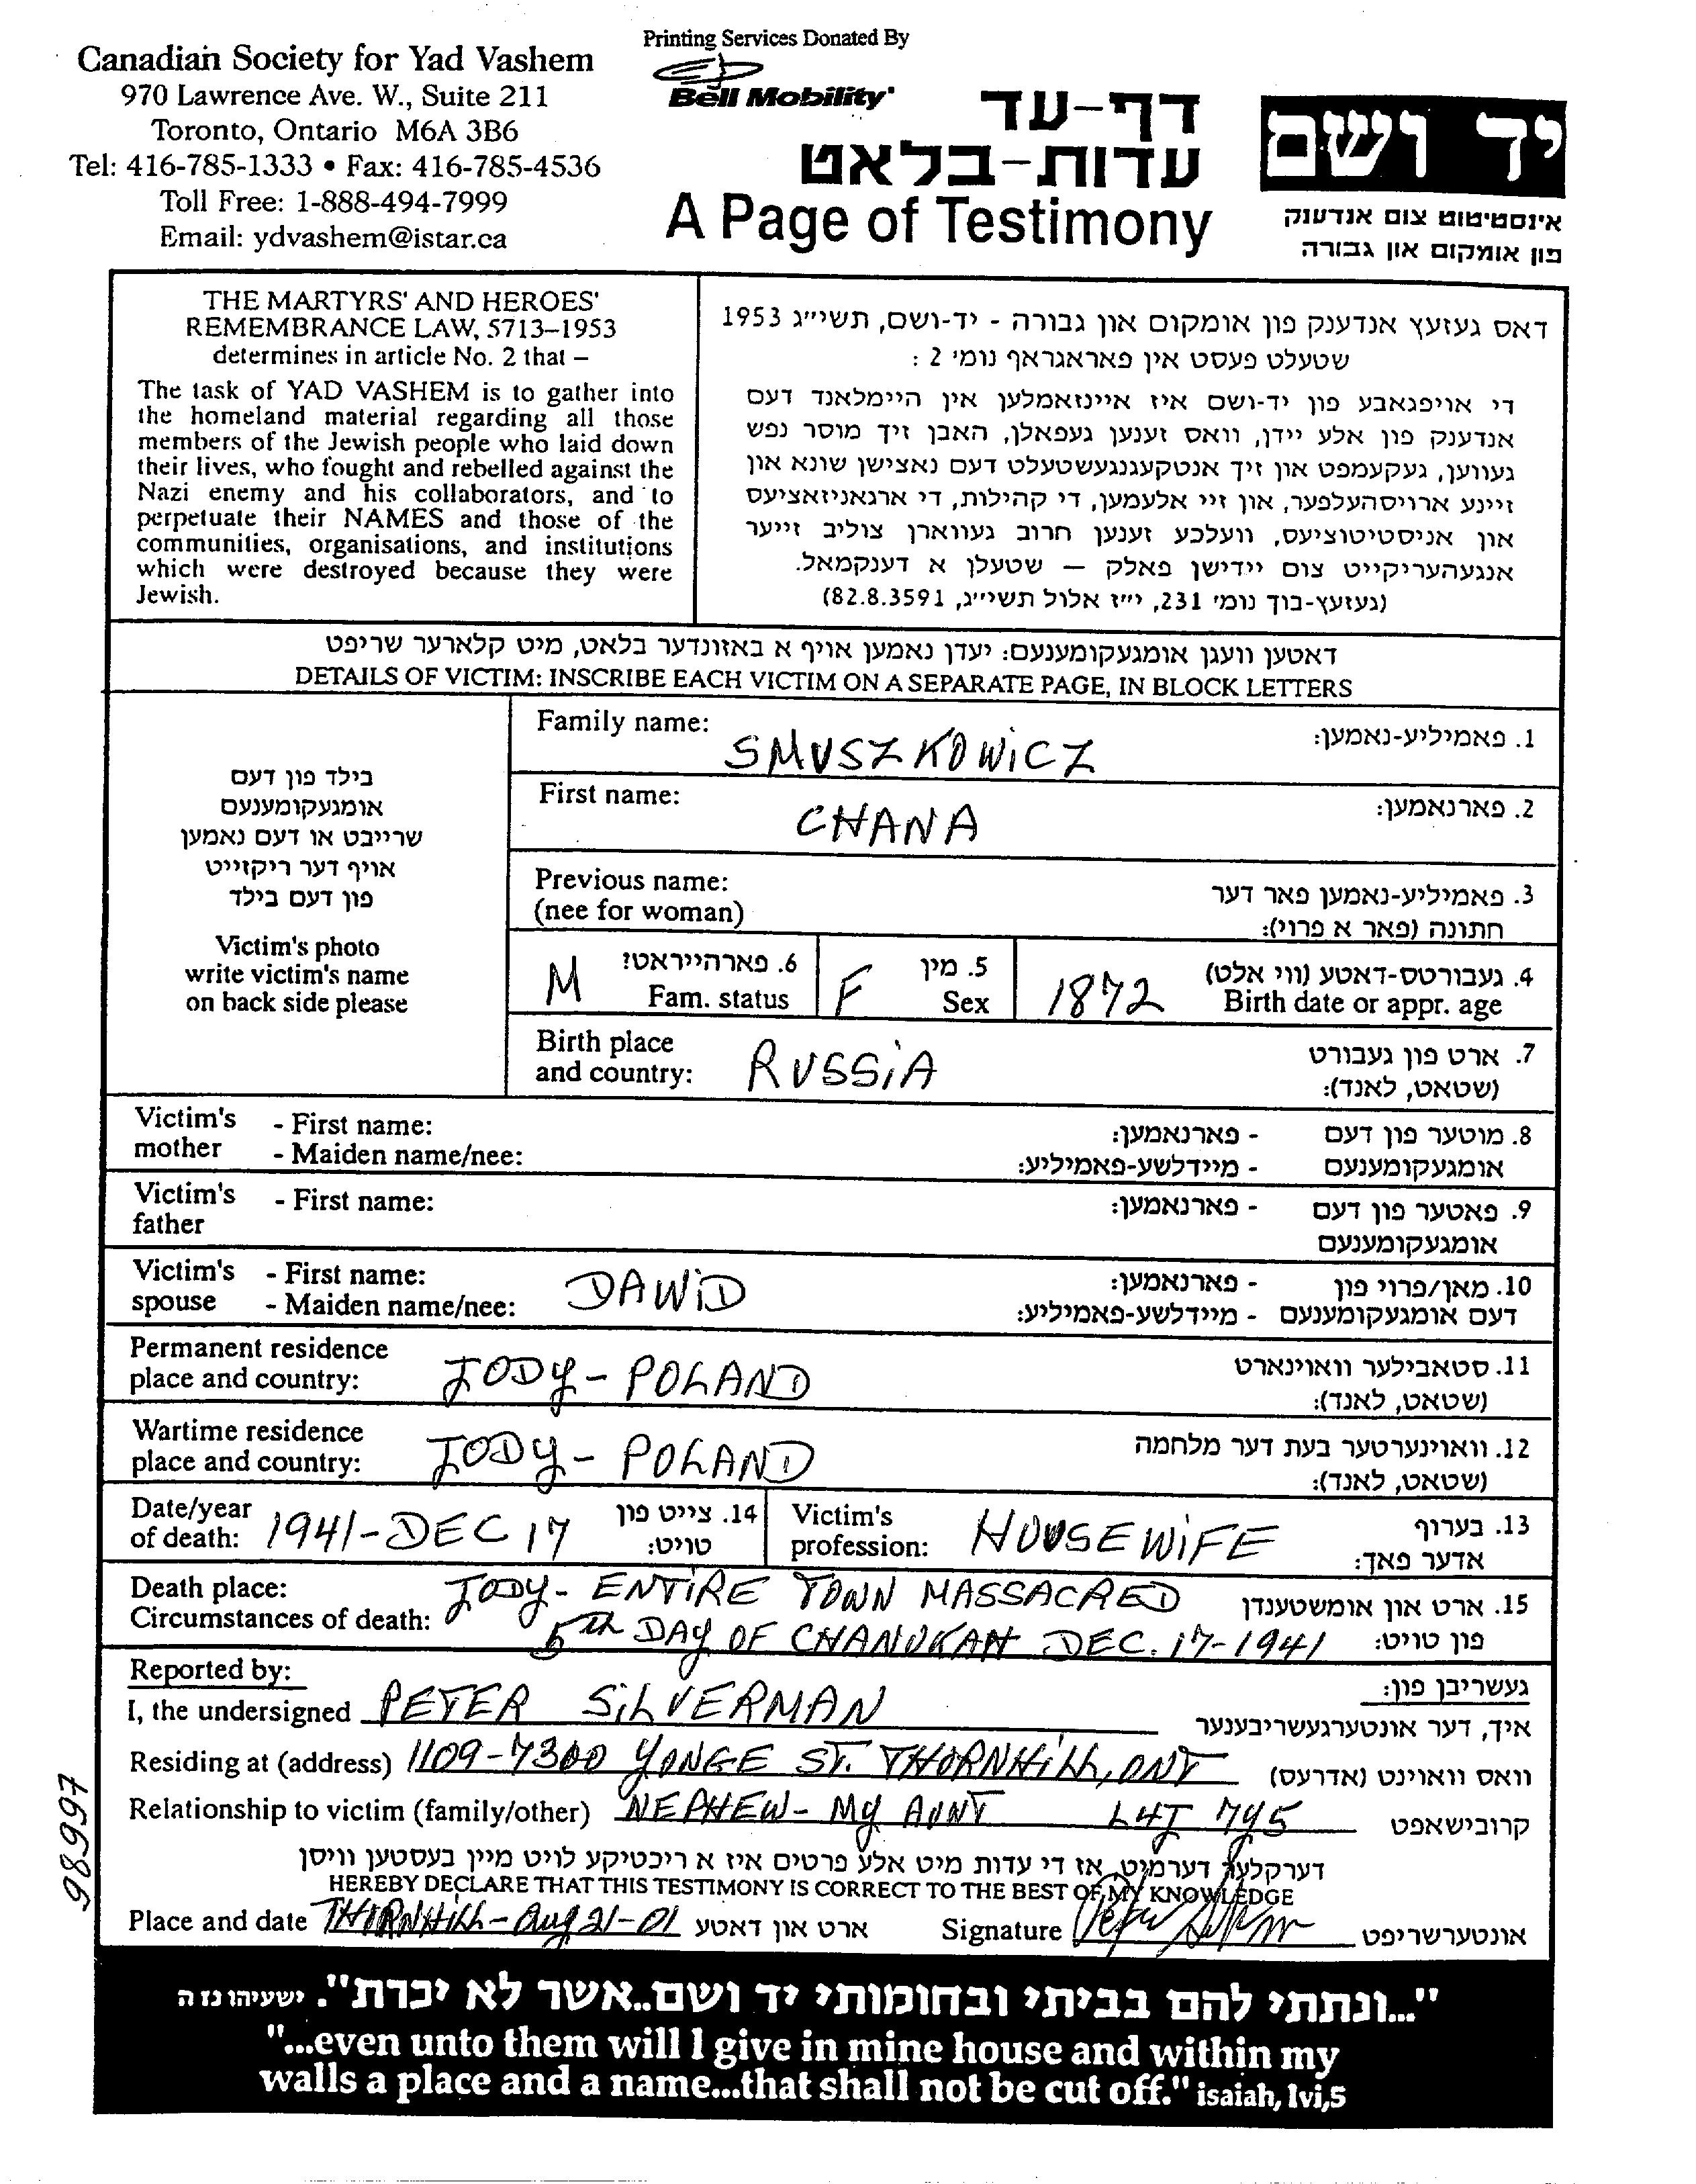 Canadian Society for Yad Vashem
970 Lawrence Ave. W., Suite 211
Toronto, Ontario M6A 3B6
Tel: 416-785-1333 • Fax: 416-785-4536
Toll Free: 1-888-494-7999
Email: ydvashem@istar.ca
Printing Services Donated By
Bell Mobility
דף-עד
עדות-בלאט
A Page of Testimony
יד ושם
אינסטיטוט צום אנדענק
פון אומקום און גבורה
THE MARTYRS' AND HEROES'
REMEMBRANCE LAW, 5713–1953
determines in article No. 2 that –
The task of YAD VASHEM is to gather into
the homeland material regarding all those
members of the Jewish people who laid down
their lives, who fought and rebelled against the
Nazi enemy and his collaborators, and to
perpetuate their NAMES and those of the
communities, organisations, and institutions
which were destroyed because they were
Jewish.
דאס געזעץ אנדענק פון אומקום און גבורה - יד-ושם, תשי״ג 1953
שטעלט פעסט אין פאראגראף נומ׳ 2 :
די אויפגאבע פון יד-ושם איז איינזאמלען אין היימלאנד דעם
אנדענק פון אלע יידן, וואס זענען געפאלן, האבן זיך מוסר נפש
געווען, געקעמפט און זיך אנטקעגנגעשטעלט דעם נאצישן שונא און
זיינע ארויסהעלפער, און זיי אלעמען, די קהילות, די ארגאניזאציעס
און אניסטיטוציעס, וועלכע זענען חרוב געווארן צוליב זייער
אנגעהעריקייט צום יידישן פאלק — שטעלן א דענקמאל.
(געזעץ-בוך נומ׳ 231, י״ז אלול תשי״ג, 82.8.3591)
דאטען וועגן אומגעקומענעם: יעדן נאמען אויף א באזונדער בלאט, מיט קלארער שריפט
DETAILS OF VICTIM: INSCRIBE EACH VICTIM ON A SEPARATE PAGE, IN BLOCK LETTERS
בילד פון דעם
אומגעקומענעם
שרייבט או דעם נאמען
אויף דער ריקזייט
פון דעם בילד
Victim's photo
write victim's name
on back side please
Family name: SMUSZKOWICZ 1. פאמיליע-נאמען:
First name: CHANA 2. פארנאמען:
Previous name: 3. פאמיליע-נאמען פאר דער
(nee for woman) חתונה (פאר א פרוי):
M 6. פארהייראט? F 5. מין 1872 4. געבורטס-דאטע (ווי אלט)
Fam. status Sex Birth date or appr. age
Birth place RUSSIA 7. ארט פון געבורט
and country: (שטאט, לאנד):
Victim's - First name: - פארנאמען: 8. מוטער פון דעם
mother - Maiden name/nee: - מיידלשע-פאמיליע: אומגעקומענעם
Victim's - First name: - פארנאמען: 9. פאטער פון דעם
father אומגעקומענעם
Victim's - First name: DAWID - פארנאמען: 10. מאן/פרוי פון
spouse - Maiden name/nee: - מיידלשע-פאמיליע: דעם אומגעקומענעם
Permanent residence 11. סטאבילער וואוינארט
place and country: JODY - POLAND (שטאט, לאנד):
Wartime residence 12. וואוינערטער בעת דער מלחמה
place and country: JODY - POLAND (שטאט, לאנד):
Date/year 14. צייט פון Victim's 13. בערוף
of death: 1941-DEC 17 טויט: profession: HOUSEWIFE אדער פאך:
Death place: JODY - ENTIRE TOWN MASSACRED 15. ארט און אומשטענדן
Circumstances of death: 5th DAY OF CHANUKAH DEC. 17-1941 פון טויט:
Reported by: געשריבן פון:
I, the undersigned PETER SILVERMAN איך, דער אונטערגעשריבענער
Residing at (address) 1109-7300 YONGE ST. THORNHILL, ONT וואס וואוינט (אדרעס)
Relationship to victim (family/other) NEPHEW - MY AUNT L4J 7Y5 קרובישאפט
דערקלער דערמיט, אז די עדות מיט אלע פרטים איז א ריכטיקע לויט מיין בעסטען וויסן
HEREBY DECLARE THAT THIS TESTIMONY IS CORRECT TO THE BEST OF MY KNOWLEDGE
Place and date THORNHILL - Aug 21-01 ארט און דאטע Signature Peter Silverman אונטערשריפט
98997
"...ונתתי להם בביתי ובחומותי יד ושם..אשר לא יכרת". ישעיהו נז ה
"...even unto them will I give in mine house and within my
walls a place and a name...that shall not be cut off." isaiah, lvi,5